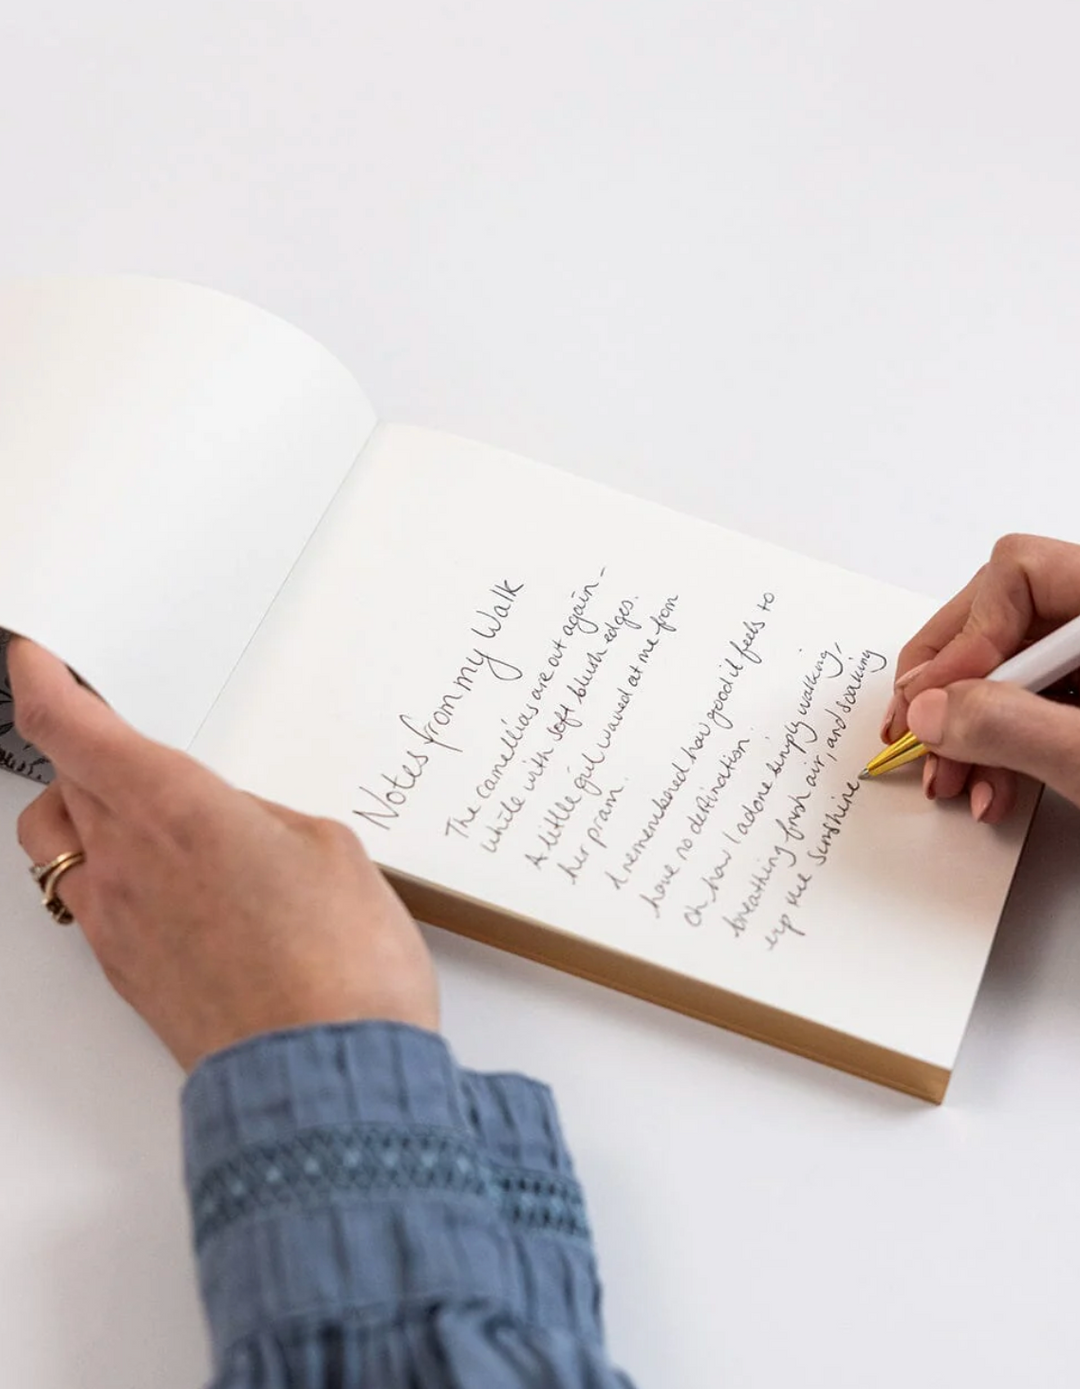 Notes from my Walk
The camellias are out again -
white with soft blush edges.
A little girl waved at me from
her pram.
I remembered how good it feels to
have no destination.
Oh how I adore simply walking,
breathing fresh air, and soaking
up the sunshine